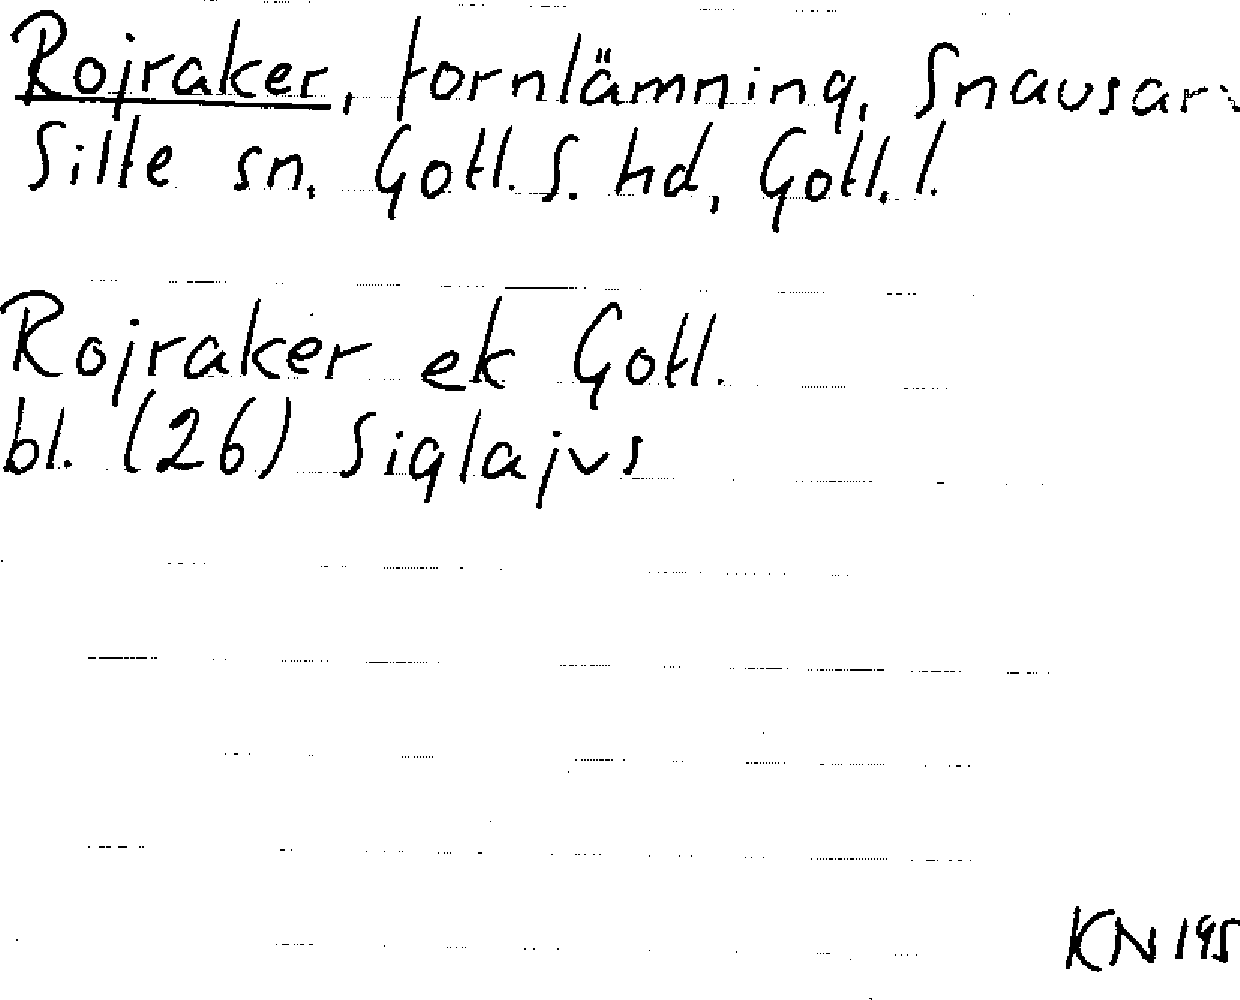 Rojraker, fornlämning, Snausarv
Silte sn. Gotl. S. hd, Gotl. l.
Rojraker ek Gotl.
bl. (26) Siglajvs
KN 195